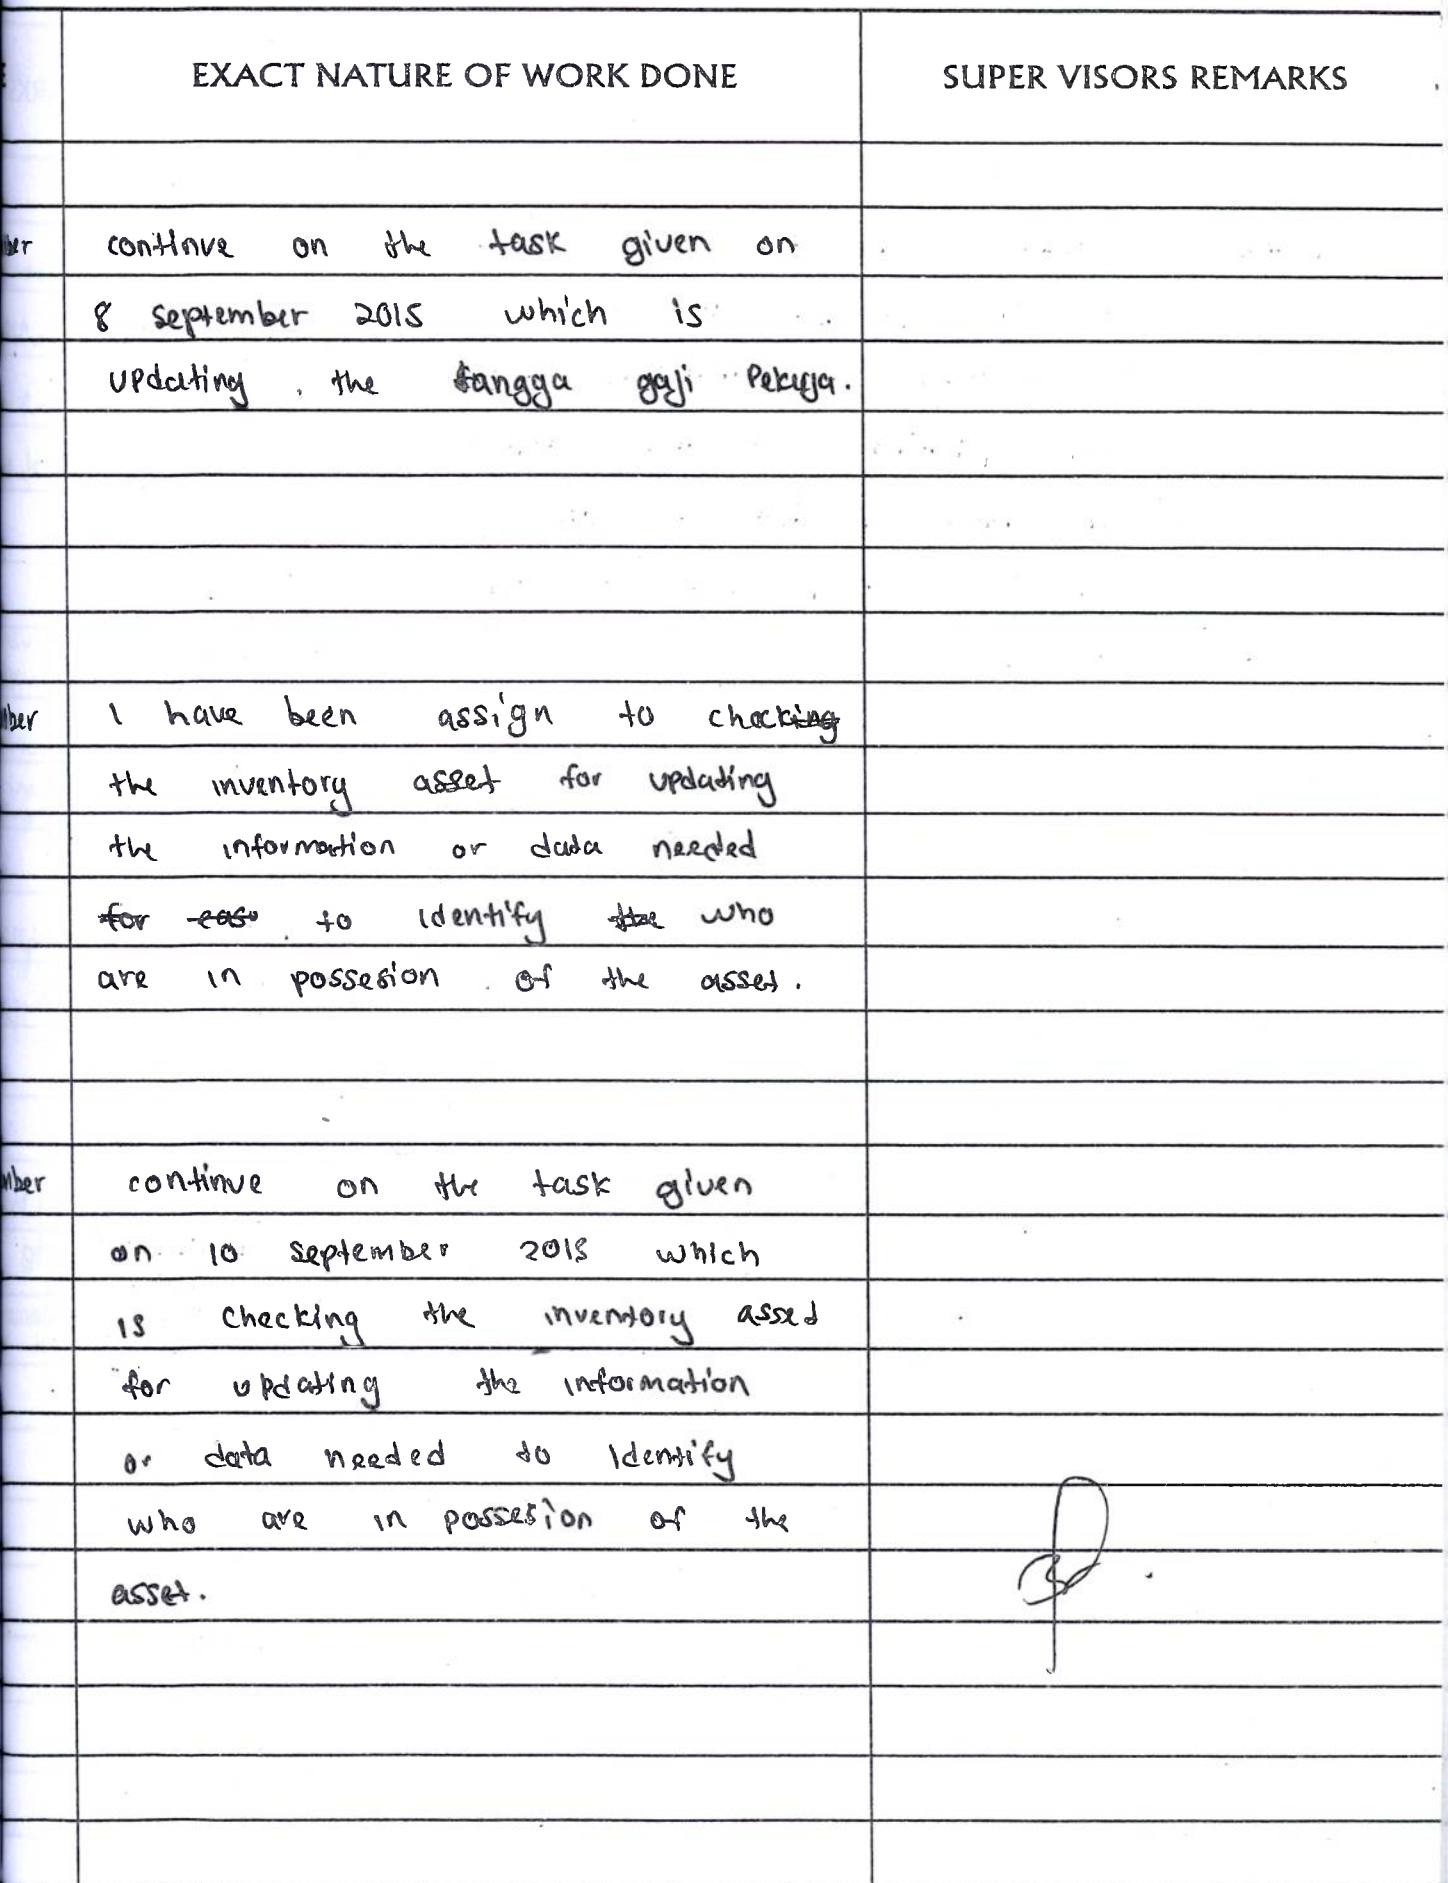 EXACT NATURE OF WORK DONE SUPER VISORS REMARKS
continue on the task given on
8 september 2015 which is
updating the tangga gaji Pekerja.
I have been assign to check
the inventory asset for updating
the information or data needed
for to identify the who
are in possesion of the asset.
continue on the task given
on 10 september 2015 which
is checking the inventory asset
for updating the information
or data needed to identify
who are in possesion of the
asset.